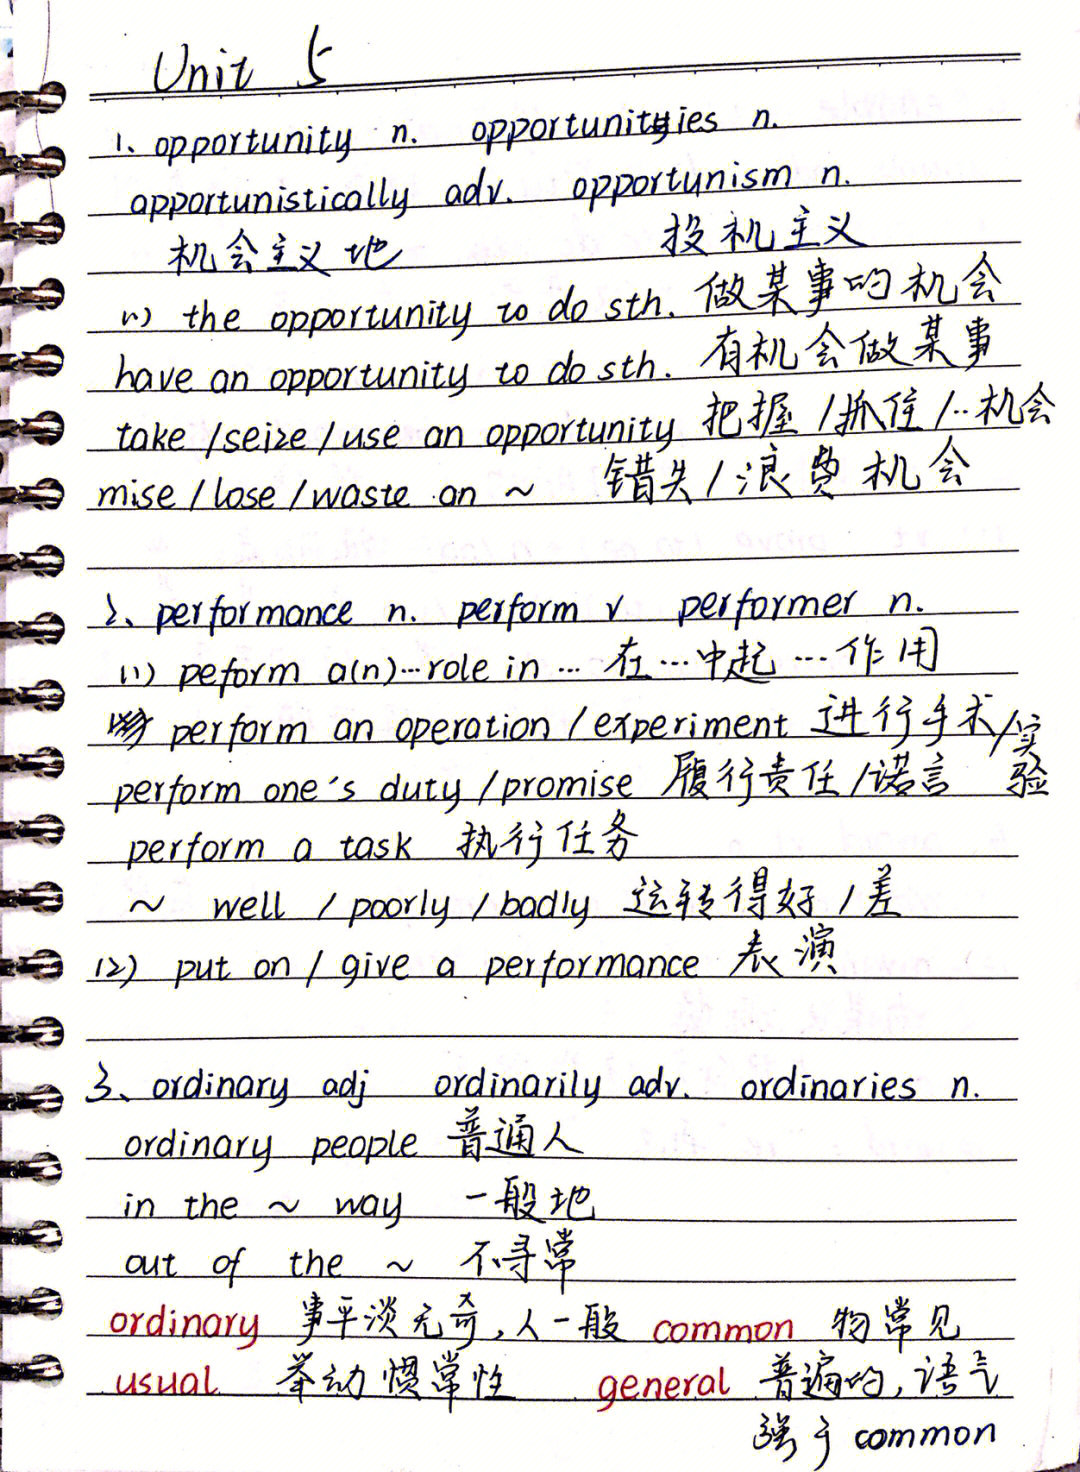 Unit 5
1、opportunity n. opportunities n.
opportunistically adv. opportunism n.
机会主义地 投机主义
(1) the opportunity to do sth. 做某事的机会
have an opportunity to do sth. 有机会做某事
take /seize /use an opportunity 把握 /抓住 /‥机会
mise / lose / waste an ~ 错失 / 浪费机会
2、performance n. perform v performer n.
(1) peform a(n)…role in … 在…中起…作用
perform an operation / experiment 进行手术/实验
perform one's duty / promise 履行责任 /诺言
perform a task 执行任务
~ well / poorly / badly 运转得好 / 差
(2) put on / give a performance 表演
3、ordinary adj ordinarily adv. ordinaries n.
ordinary people 普通人
in the ~ way 一般地
out of the ~ 不寻常
ordinary 事平淡无奇,人一般 common 物常见
usual 举动惯常性 general 普遍的,语气
强于 common